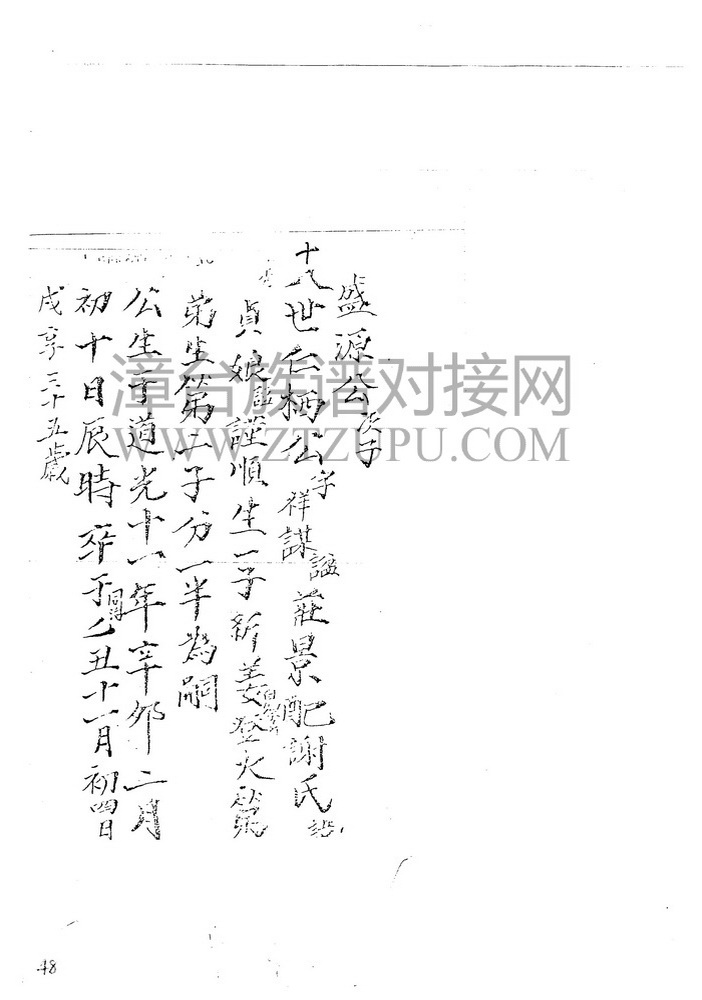 盛源公次子
十八世仁栖公字祥謀諡莊景配謝氏諱
貞娘諡謹順生一子新姜登火獻第
弟生第二子分一半為嗣
公生于道光十一年辛卯二月
初十日辰時卒于同治乙丑十一月初四日
戌享三十五歲
漳台族谱对接网
WWW.ZTZUPU.COM
48